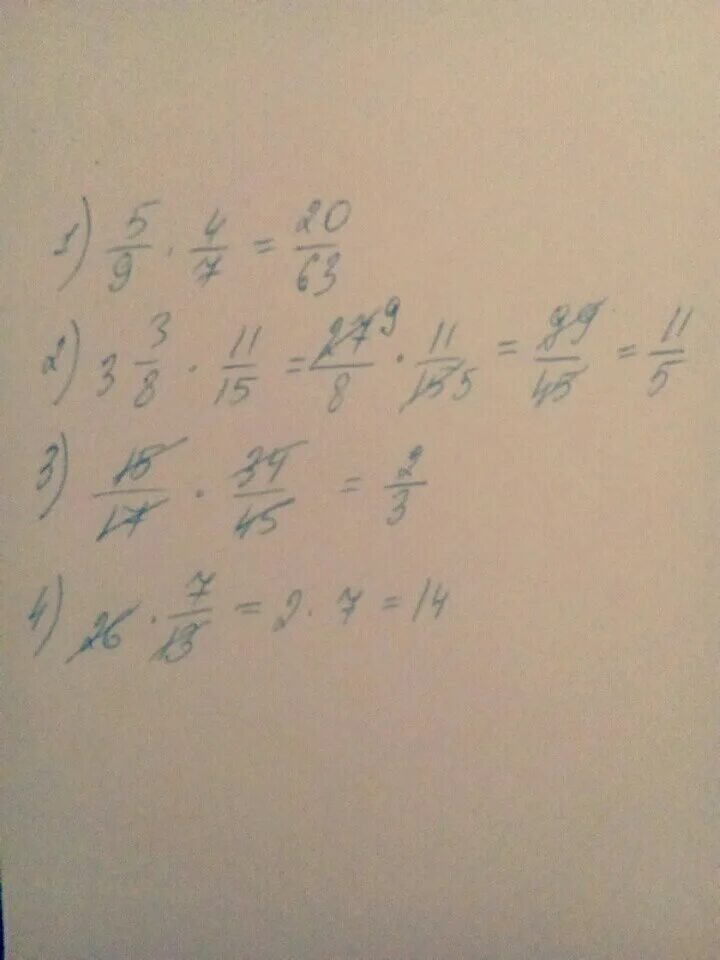 1) 5/9 · 4/7 = 20/63
2) 3 3/8 · 11/15 = 27 9/8 · 11/15 5 = 99/45 = 11/5
3) 15/17 · 34/45 = 2/3
4) 26 · 7/13 = 2 · 7 = 14